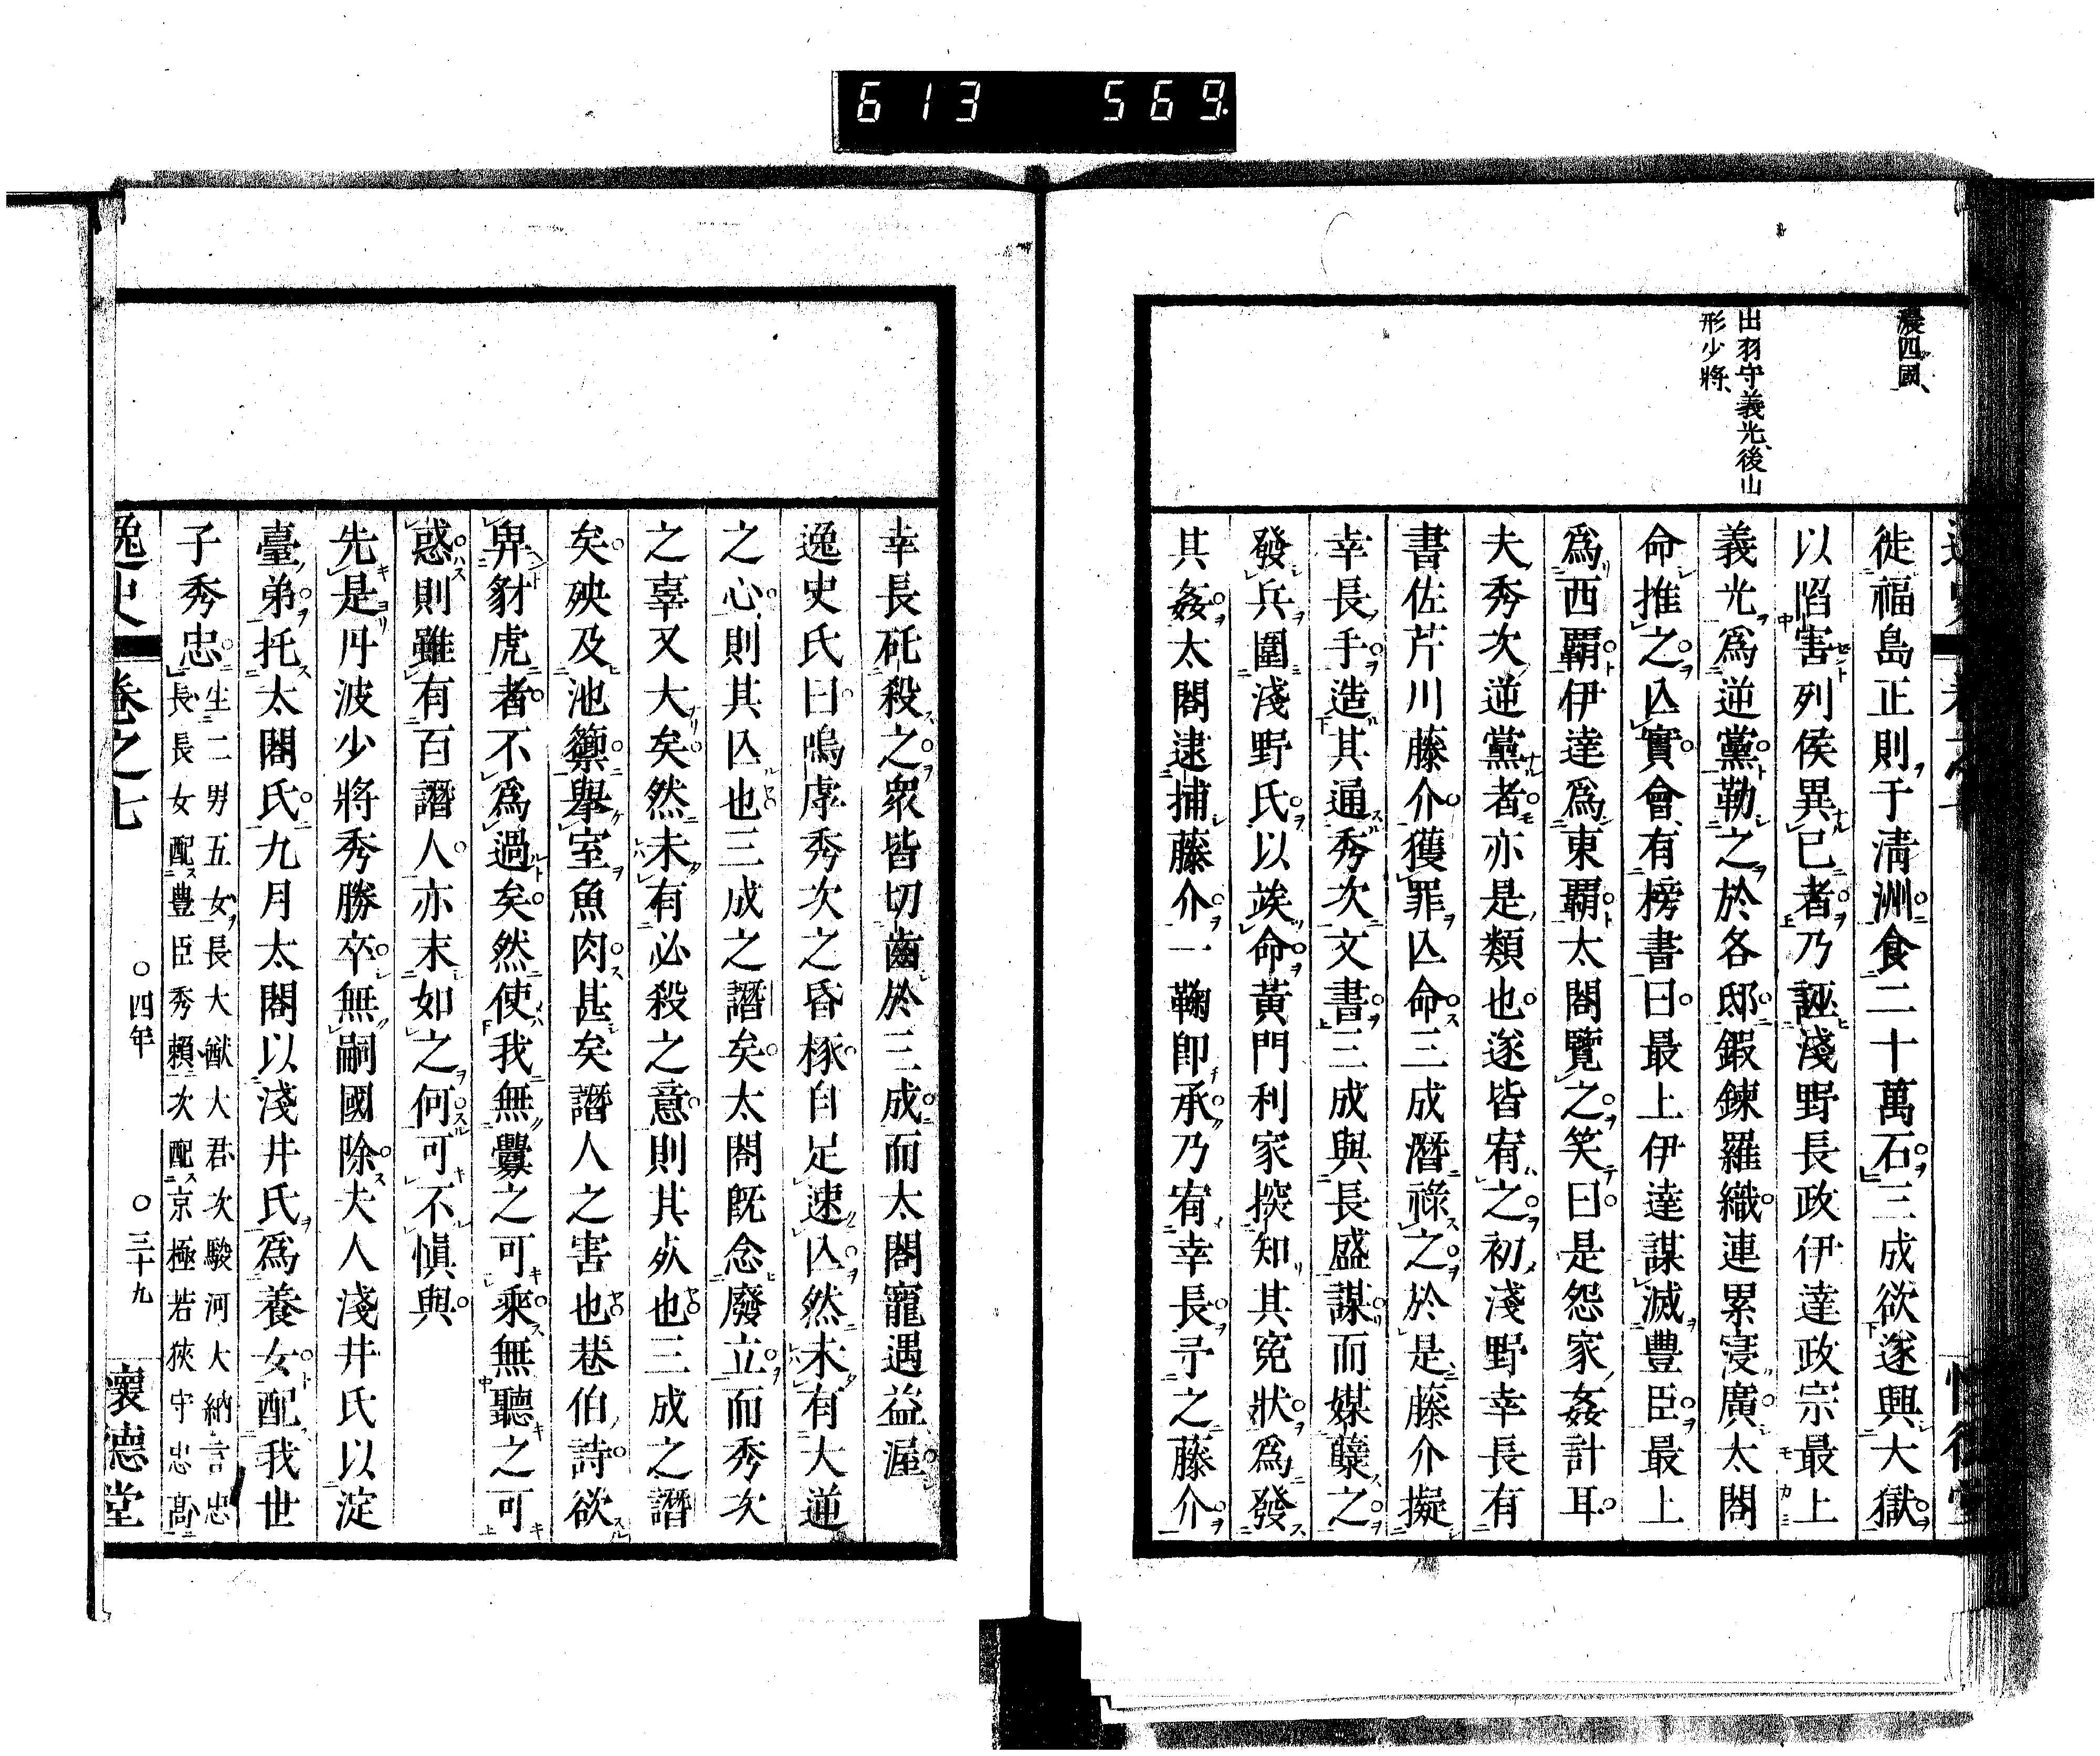 613 569.
濃四國、
出羽守義光、後山
形少將、
徙福島正則于清洲食二十萬石三成欲遂興大獄
以陷害列侯異己者乃誣淺野長政伊達政宗最上
義光爲逆黨勒之於各邸鍛鍊羅織連累寖廣太閤
命推之亾實會有榜書曰最上伊達謀滅豐臣最上
爲西覇伊達爲東覇太閤覽之笑曰是怨家姦計耳
夫秀次逆黨者亦是類也遂皆宥之初淺野幸長有
書佐芹川藤介獲罪亾命三成潛祿之於是藤介擬
幸長手造其通秀次文書三成與長盛謀而媒糵之
發兵圍淺野氏以竢命黃門利家揬知其冤狀爲發
其姦太閤逮捕藤介一鞠即承乃宥幸長予之藤介
幸長矺殺之衆皆切齒於三成而太閤寵遇益渥
逸史氏曰嗚虖秀次之昏椓自足速亾然未有大逆
之心則其亾也三成之譖矣太閤既念廢立而秀次
之辜又大矣然未有必殺之意則其死也三成之譖
矣殃及池籞舉室魚肉甚矣譖人之害也巷伯詩欲
畀豺虎者不爲過矣然使我無釁之可乘無聽之可
惑則雖有百譖人亦末如之何可不愼與
先是丹波少將秀勝卒無嗣國除夫人淺井氏以淀
臺弟托太閤氏九月太閤以淺井氏爲養女配我世
子秀忠生二男五女長大猷大君次駿河大納言忠
長長女配豊臣秀賴次配京極若狹守忠高
逸史 卷之七 〇四年 〇三十九 懷德堂